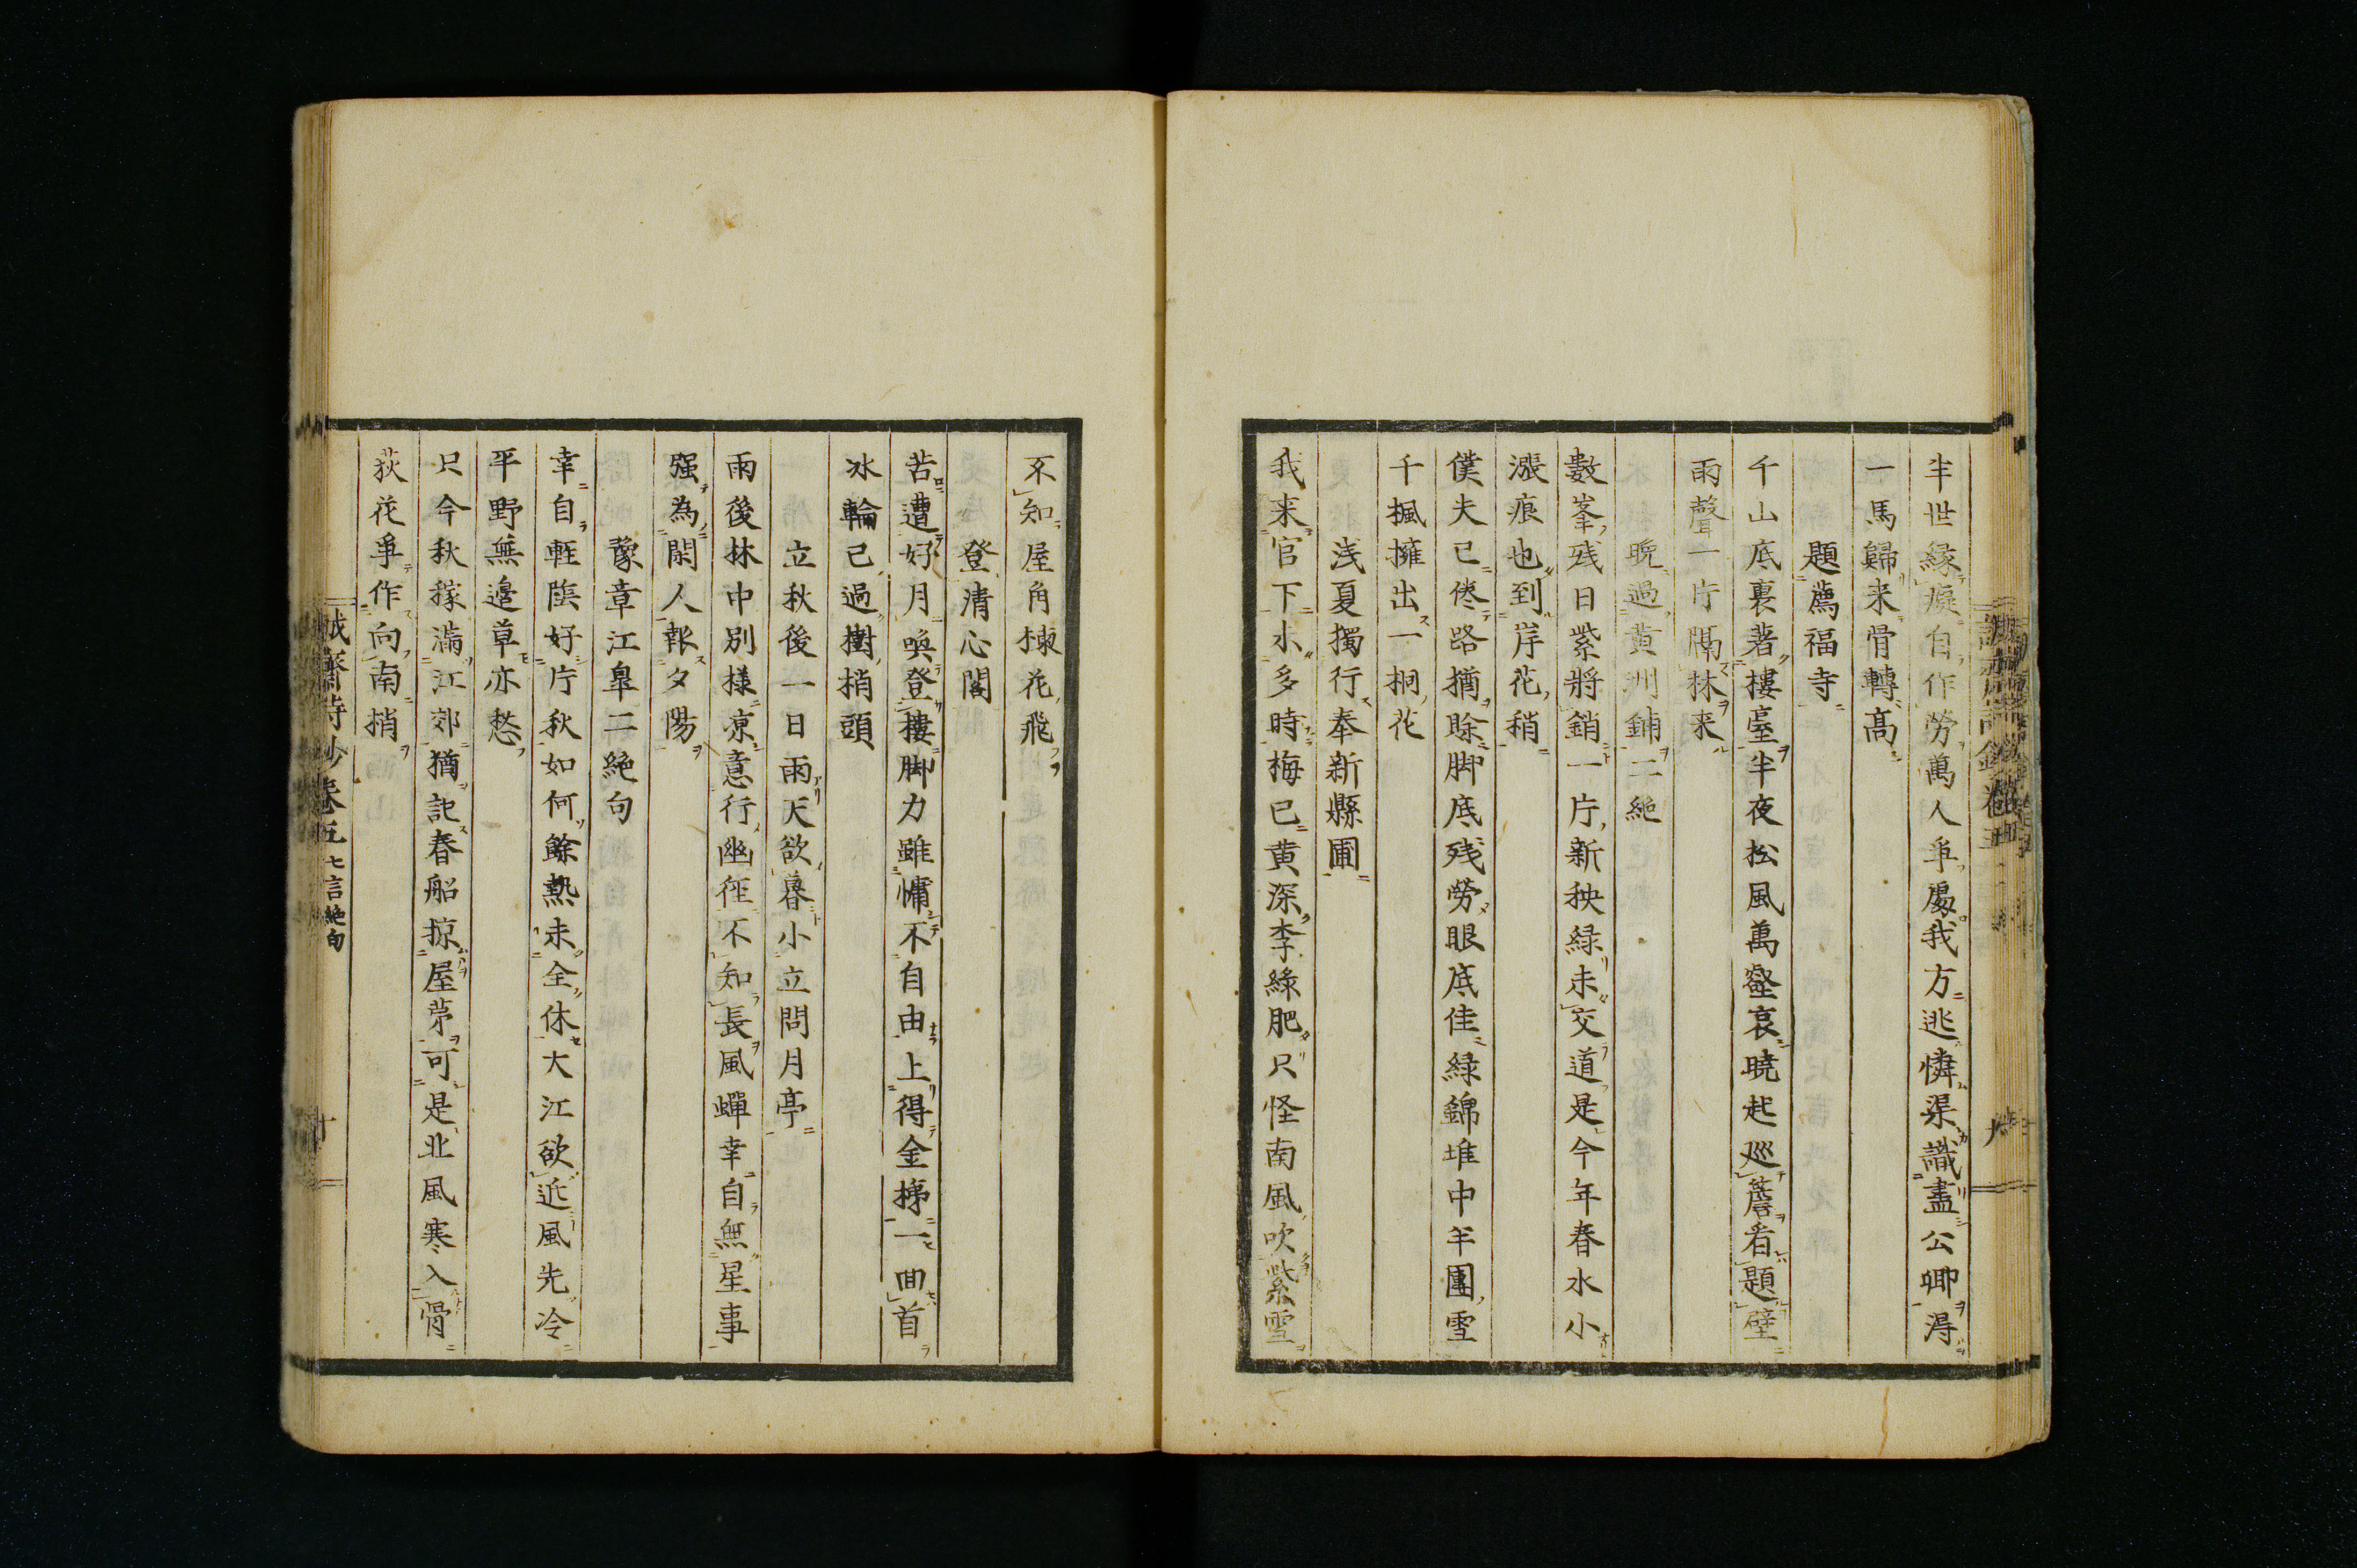 半世縁癡自作勞萬人爭處我方逃憐渠識盡公卿淂
一馬歸来骨轉髙
題薦福寺
千山底裏著樓臺半夜松風萬壑哀曉起巡簷看題壁
雨聲一片隔林来
晩過黄洲鋪二絶
數峯残日紫將銷一片新秧緑未交道是今年春水小
漲痕也到岸花稍
僕夫已倦路猶賒脚底残勞眼底佳緑錦堆中半團雪
千楓擁出一桐花
浅夏獨行奉新縣圃
我来官下水多時梅已黄深李緑肥只怪南風吹紫雪
不知屋角楝花飛
登清心閣
苦遭好月喚登樓脚力雖慵不自由上得金梯一囬首
冰輪已過樹梢頭
立秋後一日雨天欲暮小立問月亭
雨後林中別様凉意行幽徑不知長風蟬幸自無星事
强為閑人報夕陽
豫章江皐二絶句
幸自輕陰好片秋如何餘熱未全休大江欲近風先冷
平野無邉草亦愁
只今秋稼滿江郊猶記春船掠屋茅可是北風寒入骨
荻花爭作向南梢
誠齋詩鈔卷五 七言絶句 十